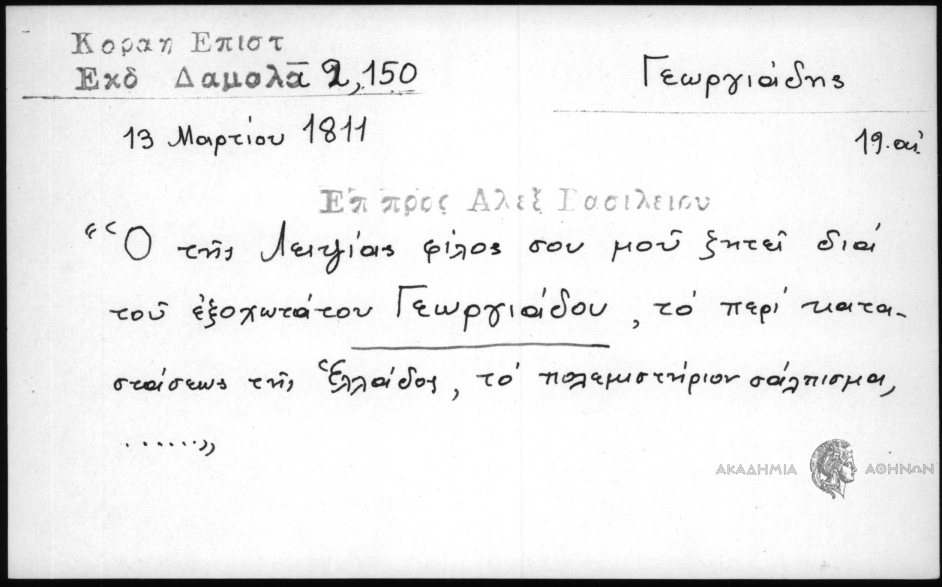 Κοραη Επιστ
Εκδ Δαμαλᾶ 2,150
Γεωργιάδης
13 Μαρτίου 1811
19. αἰ.
Επ προς Αλεξ Βασιλειου
“Ὁ τῆς Λειψίας φίλος σου μοῦ ζητεῖ διά
τοῦ ἐξοχωτάτου Γεωργιάδου, τό περί κατα-
στάσεως τῆς Ἑλλάδος, τό πολεμιστήριον σάλπισμα,
.......”
ΑΚΑΔΗΜΙΑ ΑΘΗΝΩΝ